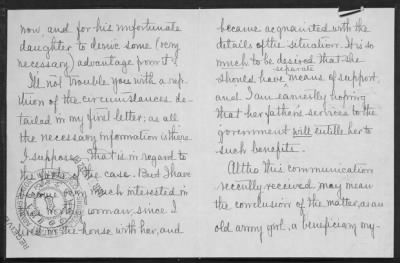 now, and for his unfortunate
daughter to derive some (very
necessary) advantage from it.
I'll not trouble you with a repe-
tition of the circumstances de-
tailed in my first letter; as all
the necessary information is there
I suppose, that is in regard to
the facts of the case. But I have
become much interested in
woman, since I
in the house with her, and
RECEIVED
became acquainted with the
details of the situation. It is so
much to be desired that she
separate
should have means of support,
and I am earnestly hoping
that her father's services to the
government will entitle her to
such benefits.
Altho this communication
recently received may mean
the conclusion of the matter, as an
old army girl, a beneficiary my-